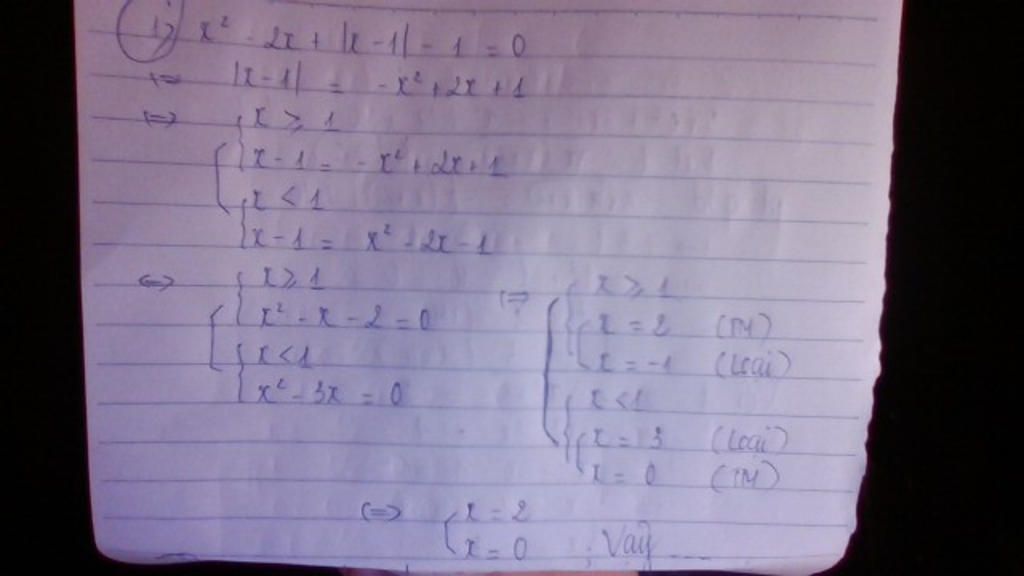 1) x² - 2x + |x-1| - 1 = 0
<=> |x-1| = -x² + 2x + 1
<=> x ≥ 1
x - 1 = -x² + 2x + 1
x < 1
x - 1 = x² - 2x - 1
<=> x ≥ 1
x² - x - 2 = 0
x < 1
x² - 3x = 0
<=> x ≥ 1
x = 2 (TM)
x = -1 (Loại)
x < 1
x = 3 (Loại)
x = 0 (TM)
<=> x = 2
x = 0 ; Vậy ....